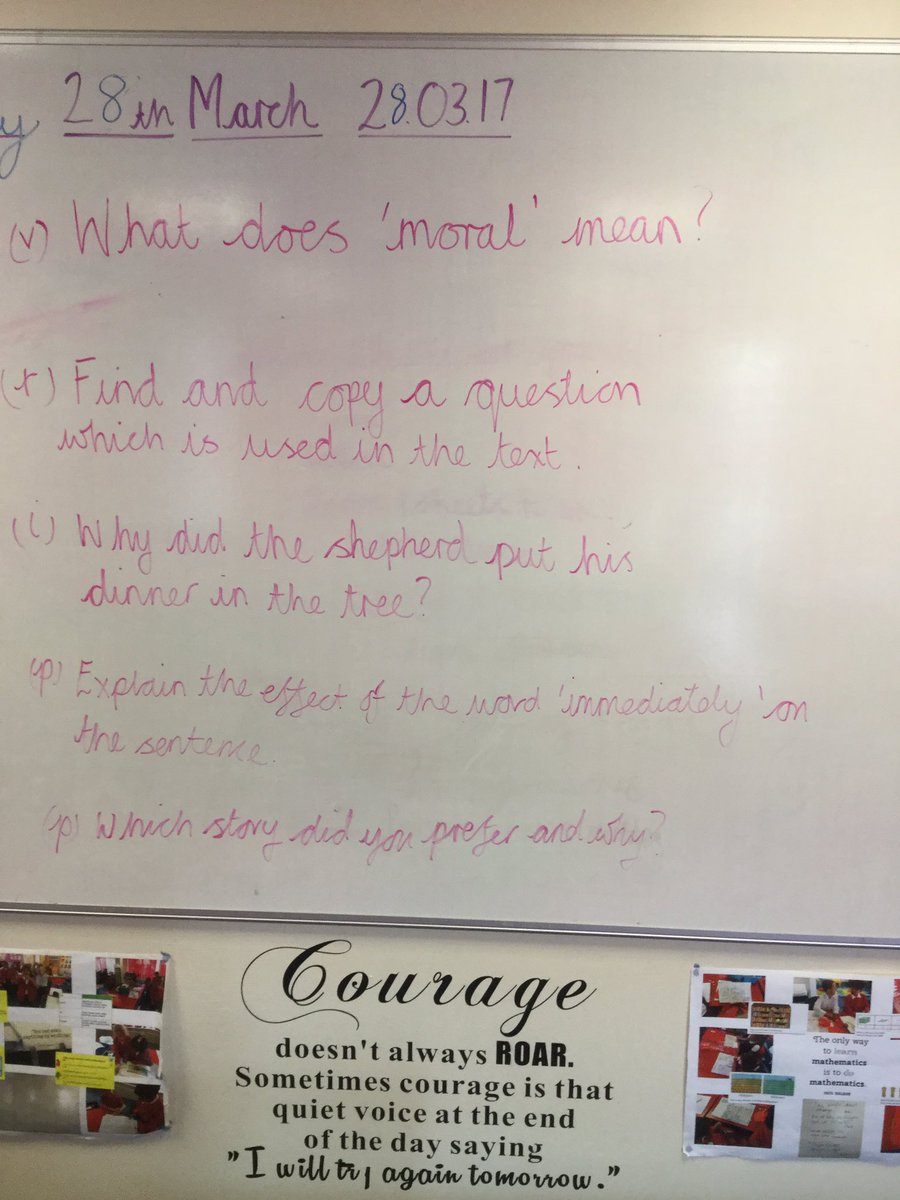 y 28th March 28.03.17
(v) What does 'moral' mean?
(r) Find and copy a question
which is used in the text.
(i) Why did the shepherd put his
dinner in the tree?
(p) Explain the effect of the word 'immediately' on
the sentence.
(p) Which story did you prefer and why?
Courage
doesn't always ROAR.
Sometimes courage is that
quiet voice at the end
of the day saying
"I will try again tomorrow."
The only way
to learn
mathematics
is to do
mathematics.